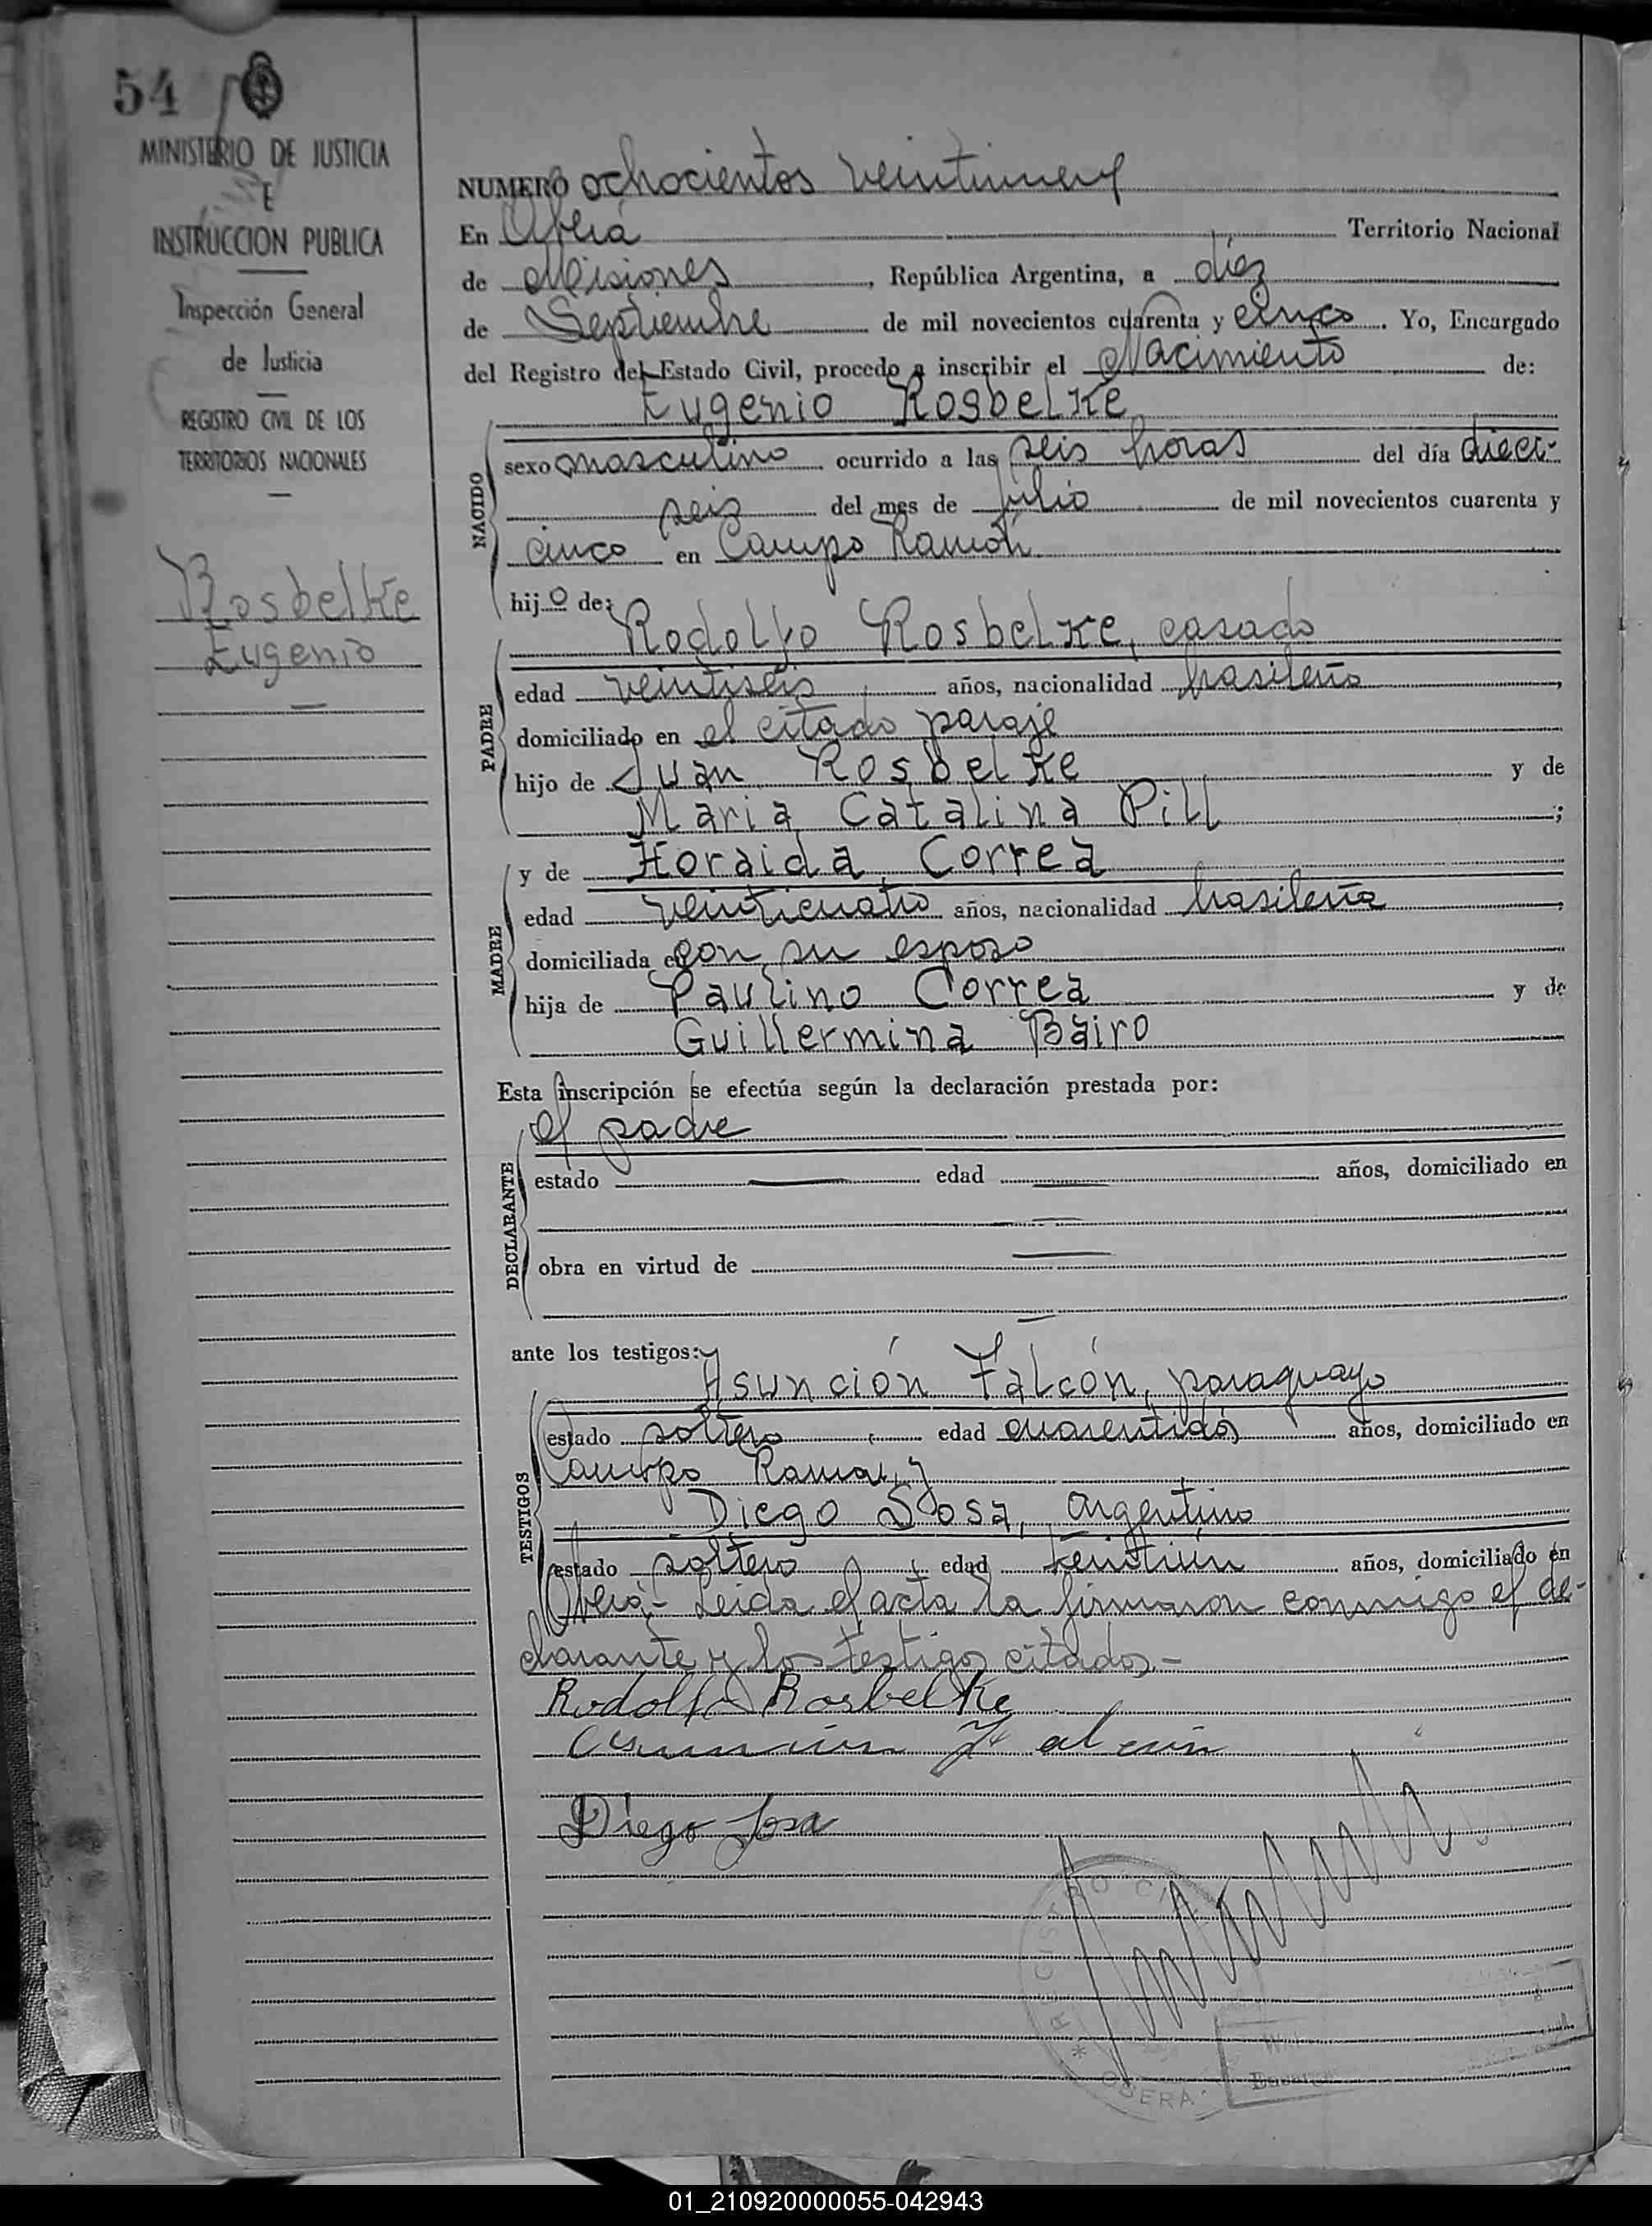 54
MINISTERIO DE JUSTICIA
E
INSTRUCCION PUBLICA
Inspección General
de Justicia
REGISTRO CIVIL DE LOS
TERRITORIOS NACIONALES
Rosbelke
Eugenio
NUMERO ochocientos veintinueve
En Oberá Territorio Nacional
de Misiones, República Argentina, a diez
de Septiembre de mil novecientos cuarenta y cinco. Yo, Encargado
del Registro del Estado Civil, procedo a inscribir el Nacimiento de:
Eugenio Rosbelke
NACIDO
sexo masculino ocurrido a las seis horas del día dieci-
seis del mes de julio de mil novecientos cuarenta y
cinco en Campo Ramón
hijo de:
Rodolfo Rosbelke, casado
PADRE
edad veintiseis años, nacionalidad brasileño,
domiciliado en el citado paraje
hijo de Juan Rosbelke y de
Maria Catalina Pill;
MADRE
y de Horaida Correa
edad veinticuatro años, nacionalidad brasileña,
domiciliada en con su esposo
hija de Paulino Correa y de
Guillermina Bairo
Esta inscripción se efectúa según la declaración prestada por:
el padre
DECLARANTE
estado — edad — años, domiciliado en
—
obra en virtud de —
—
ante los testigos:
Asunción Falcón, paraguayo
TESTIGOS
estado soltero, edad cuarentidós años, domiciliado en
Campo Ramón y
Diego Sosa, argentino
estado soltero, edad veintiún años, domiciliado en
Oberá.- Leida el acta la firmaron conmigo el de-
clarante y los testigos citados.-
Rodolfo Rosbelke
Asuncion Falcon
Diego Sosa
REGISTRO CIVIL
* OBERA
01_210920000055-042943